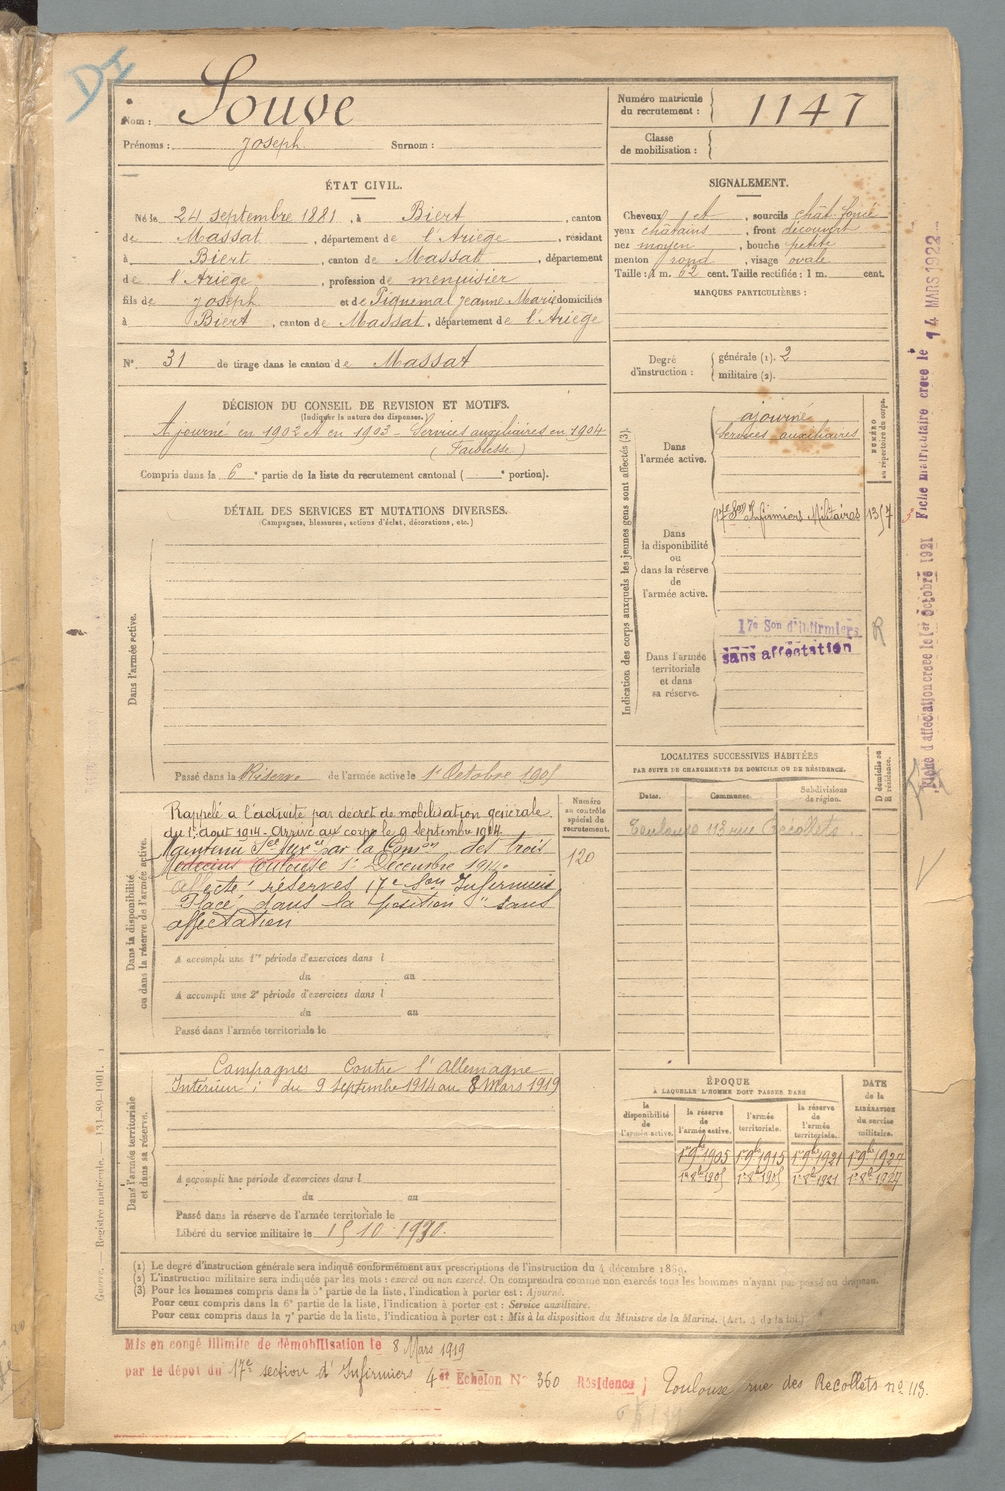 DI
Nom : Souve
Prénoms : Joseph Surnom :
Numéro matricule du recrutement : 1147
Classe de mobilisation :
ÉTAT CIVIL.
Né le 24 septembre 1881, à Biert, canton
de Massat, département de l'Ariège, résidant
à Biert, canton de Massat, département
de l'Ariège, profession de menuisier
fils de Joseph et de Piquemal Jeanne Marie domiciliés
à Biert, canton de Massat, département de l'Ariège
N° 31 de tirage dans le canton de Massat
SIGNALEMENT.
Cheveux et, sourcils chât. foncé
yeux châtains, front découvert
nez moyen, bouche petite
menton rond, visage ovale
Taille : 1 m. 62 cent. Taille rectifiée : 1 m. cent.
MARQUES PARTICULIÈRES :
Degré d'instruction : générale (1). 2
militaire (2).
DÉCISION DU CONSEIL DE REVISION ET MOTIFS.
(Indiquer la nature des dispenses.)
Ajourné en 1902 et en 1903 - Services auxiliaires en 1904
(Faiblesse)
Compris dans la 6e partie de la liste du recrutement cantonal ( e portion).
DÉTAIL DES SERVICES ET MUTATIONS DIVERSES.
(Campagnes, blessures, actions d'éclat, décorations, etc.)
Dans l'armée active.
Passé dans la Réserve de l'armée active le 1er Octobre 1905
Indication des corps auxquels les jeunes gens sont affectés (3).
NUMÉRO au répertoire du corps.
Dans l'armée active.
ajourné
Services auxiliaires
Dans la disponibilité ou dans la réserve de l'armée active.
17e Son d'Infirmiers Militaires 1357
Dans l'armée territoriale et dans sa réserve.
17e Son d'Infirmiers
sans affectation
R
Dans la disponibilité ou dans la réserve de l'armée active.
Rappelé à l'activité par décret de mobilisation générale
du 1er Aout 1914. Arrivé au corps le 9 septembre 1914.
Maintenu Sce Auxre par la Comon des trois
Médecins Toulouse 1er Décembre 1914.
Affecté réserves 17e Son Infirmiers
Placé dans la position "sans
affectation
Numéro au contrôle spécial du recrutement.
120
A accompli une 1re période d'exercices dans l
du au
A accompli une 2e période d'exercices dans l
du au
Passé dans l'armée territoriale le
LOCALITES SUCCESSIVES HABITÉES
PAR SUITE DE CHANGEMENTS DE DOMICILE OU DE RÉSIDENCE.
Dates. Communes. Subdivisions de région. D domicile ou R résidence.
Toulouse 113 rue Récollets.
Dans l'armée territoriale et dans sa réserve.
Campagnes Contre l'Allemagne
Intérieur : du 9 Septembre 1914 au 8 Mars 1919
A accompli une période d'exercices dans l
du au
Passé dans la réserve de l'armée territoriale le
Libéré du service militaire le 15 10 1930.
ÉPOQUE
A LAQUELLE L'HOMME DOIT PASSER DANS
la disponibilité de l'armée active. la réserve de l'armée active. l'armée territoriale. la réserve de l'armée territoriale. DATE de la LIBÉRATION du service militaire.
1er 9bre 1905 1er 9bre 1915 1er 9bre 1921 1er 9bre 1927
(1) Le degré d'instruction générale sera indiqué conformément aux prescriptions de l'instruction du 4 décembre 1889.
(2) L'instruction militaire sera indiquée par les mots : exercé ou non exercé. On comprendra comme non exercés tous les hommes n'ayant pas passé au drapeau.
(3) Pour les hommes compris dans la 5e partie de la liste, l'indication à porter est : Ajourné.
Pour ceux compris dans la 6e partie de la liste, l'indication à porter est : Service auxiliaire.
Pour ceux compris dans la 7e partie de la liste, l'indication à porter est : Mis à la disposition du Ministre de la Marine. (Art. 4 de la loi.)
Mis en congé illimité de démobilisation le 8 Mars 1919
par le dépôt du 17e section d'Infirmiers 4er Echelon N° 360 Résidence ; Toulouse rue des Recollets n° 113.
Guerre. Registre matricule. — 131-89-1901.
Fiche d'affectation creee le 1er Octobre 1921 Fiche matriculaire creee le 14 MARS 1922